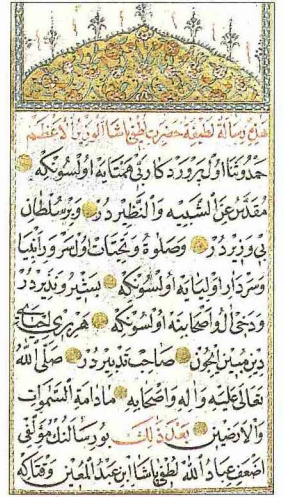 هذه رسالة لطيفة حضرت لطفى پاشا الوزير الاعظم
حمد و ثنا اول پروردكار بى همتايه اولسونكه
مقدس عن الشبيه والنظير در و بر سلطان
بى وزير در و صلوة و تحيات اول سرور انبيا
و سردار اوليايه اولسونكه بشير و نذير در
و دخى آل و اصحابنه اولسونكه هر برى
دين مبين ايچون صاحب تدبير در صلى الله
تعالى عليه و آله و اصحابه مادامة السموات
والارضين بعد ذلك بو رسالنك مؤلفى
اضعف عباد الله لطفى پاشا ابن عبد المعين وقتاكه